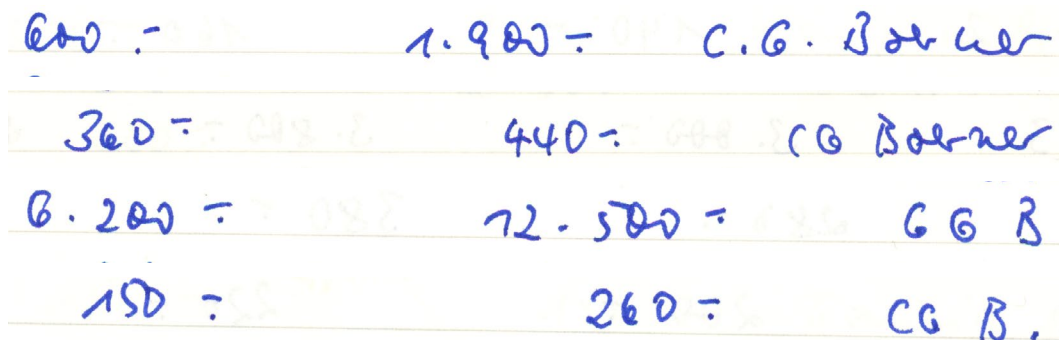 600.- 1.900.- C.G. Boerner
360.- 440.- CG Boerner
6.200.- 12.500.- CGB
150.- 260.- CG B.